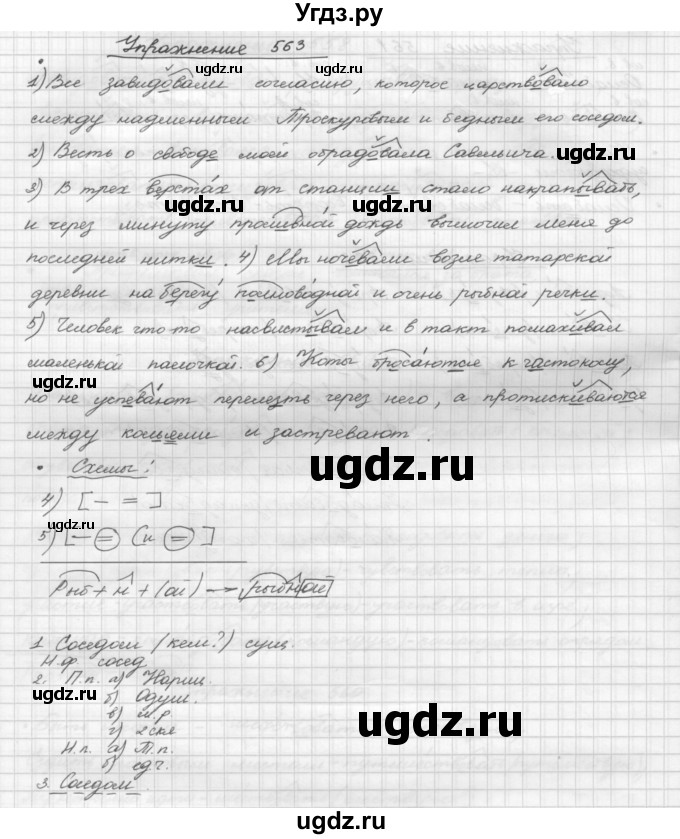 Угдз.ру
Упражнение 563
1) Все завидовали согласию, которое царствовало
между надменным Троекуровым и бедным его соседом.
2) Весть о свободе моей обрадовала Савельича.
3) В трех верстах от станции стало накрапывать,
и через минуту проливной дождь вымочил меня до
последней нитки. 4) Мы ночевали возле татарской
деревни на берегу полноводной и очень рыбной речки.
5) Человек что-то насвистывал и в такт помахивал
маленькой палочкой. 6) Коты бросаются к частоколу,
но не успевают перелезть через него, а протискиваются
между кольями и застревают.
• Схемы:
4) [— =]
5) [— = (и =]
Рыб + н + (ой) → рыбной
1 Соседом (кем?) сущ.
Н.ф. сосед.
2. П.п. а) Нариц.
б) Одуш.
в) м.р.
г) 2скл
Н.п. а) Т.п.
б) ед.ч.
3. Соседом
ugdz.ru
ugdz.ru
ugdz.ru
ugdz.ru
ugdz.ru
ugdz.ru
ugdz.ru
ugdz.ru
ugdz.ru
ugdz.ru
ugdz.ru
ugdz.ru
ugdz.ru
ugdz.ru